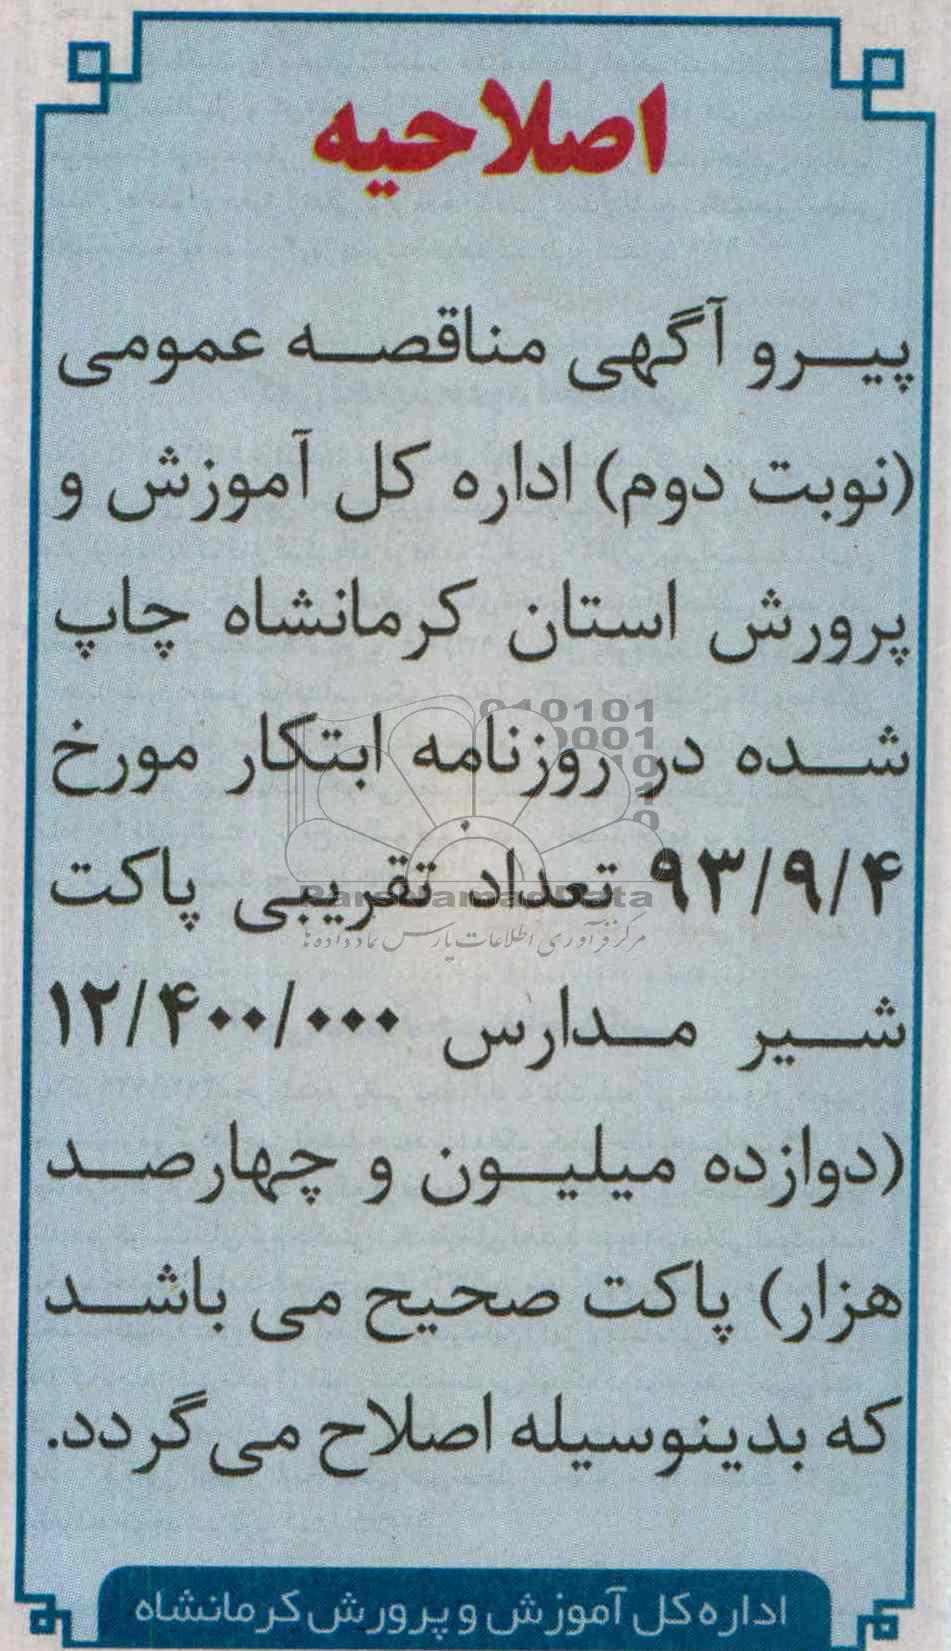 اصلاحیه
پیرو آگهی مناقصه عمومی
(نوبت دوم) اداره کل آموزش و
پرورش استان کرمانشاه چاپ
شده در روزنامه ابتکار مورخ
۹۳/۹/۴ تعداد تقریبی پاکت
شیر مدارس ۱۲/۴۰۰/۰۰۰
(دوازده میلیون و چهارصد
هزار) پاکت صحیح می باشد
که بدینوسیله اصلاح می‌گردد.
اداره کل آموزش و پرورش کرمانشاه
010101
0001
10
1
0
ParsNamadData
مرکز فرآوری اطلاعات پارس نماد داده ها